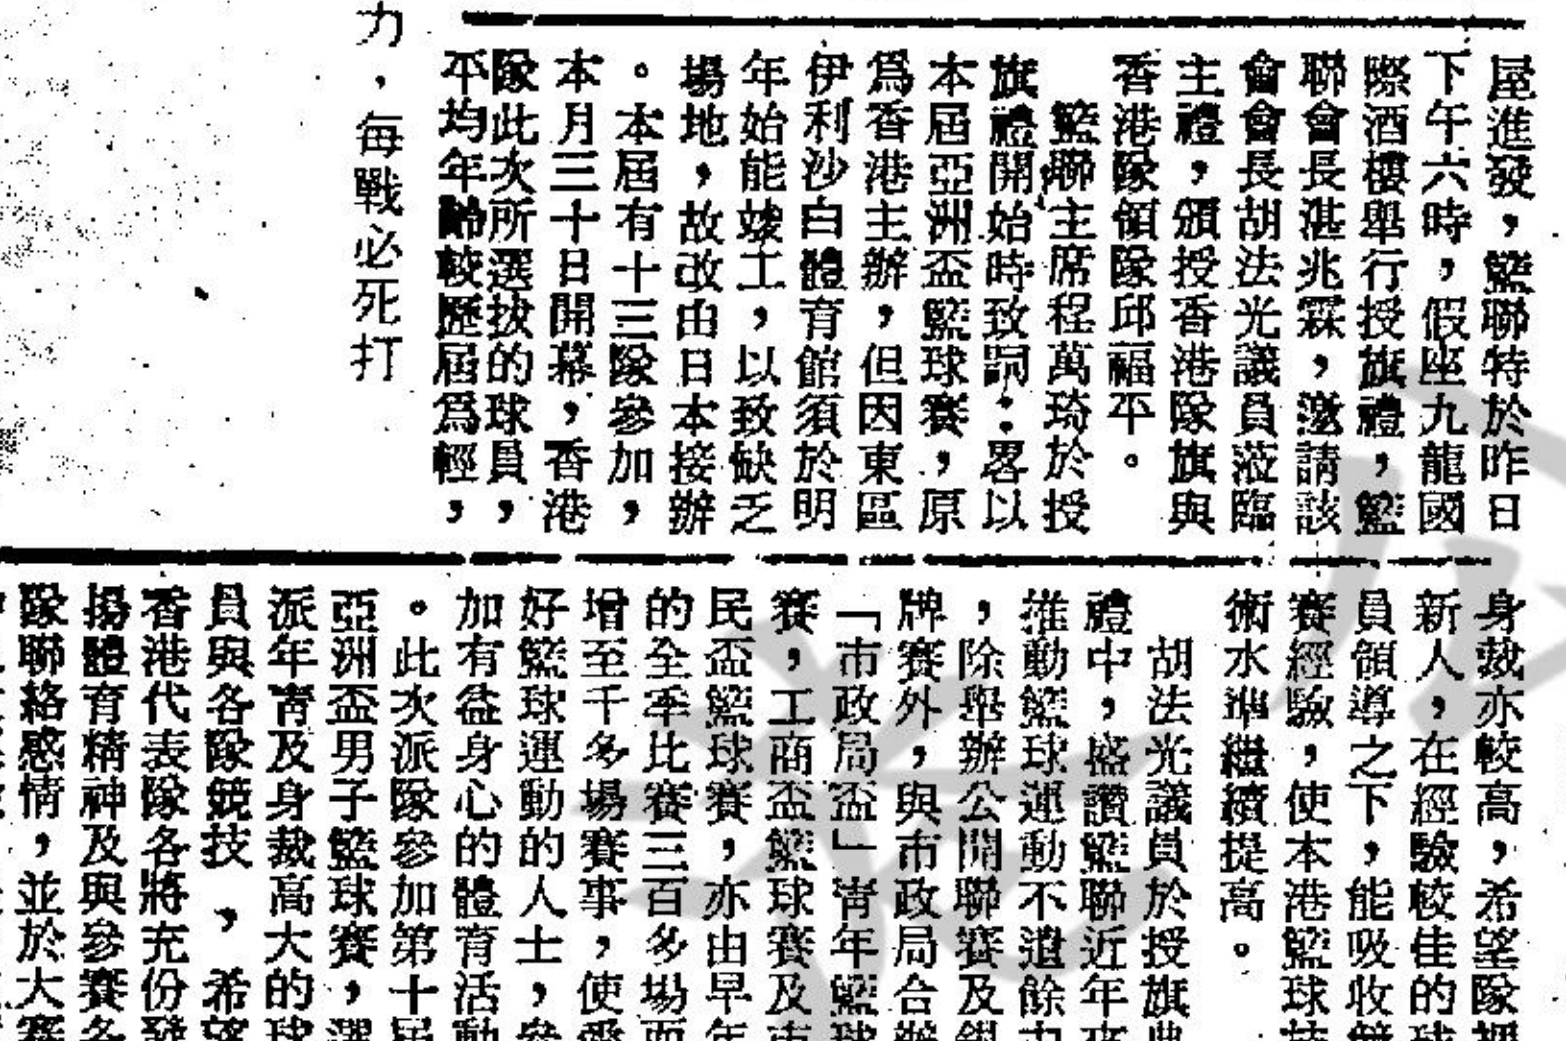 屋進發，籃聯特於昨日
下午六時，假座九龍國
際酒樓舉行授旗禮，籃
聯會長湛兆霖，邀請該
會會長胡法光議員蒞臨
主禮，頒授香港隊旗與
香港隊領隊邱福平。
籃聯主席程萬琦於授
旗禮開始時致詞：畧以
本屆亞洲盃籃球賽，原
爲香港主辦，但因東區
伊利沙白體育館須於明
年始能竣工，以致缺乏
場地，故改由日本接辦
。本屆有十三隊參加，
本月三十日開幕，香港
隊此次所選拔的球員，
平均年齡較歷屆爲輕，
力，每戰必死打
身裁亦較高，希望隊
新人，在經驗較佳的球
員領導之下，能吸收
賽經驗，使本港籃球技
術水準繼續提高。
胡法光議員於授旗典
禮中，盛讚籃聯近年來
推動籃球運動不遺餘力
，除舉辦公開聯賽及銀
牌賽外，與市政局合辦
「市政局盃」青年籃球
賽，工商盃籃球賽及市
民盃籃球賽，亦由早年
的全季比賽三百多場而
增至千多場賽事，使愛
好籃球運動的人士，參
加有益身心的體育活動
。此次派隊參加第十屆
亞洲盃男子籃球賽，選
派年青及身裁高大的球
員與各隊競技，希望
香港代表隊各將充份發
揚體育精神及與參賽各
隊聯絡感情，並於大賽